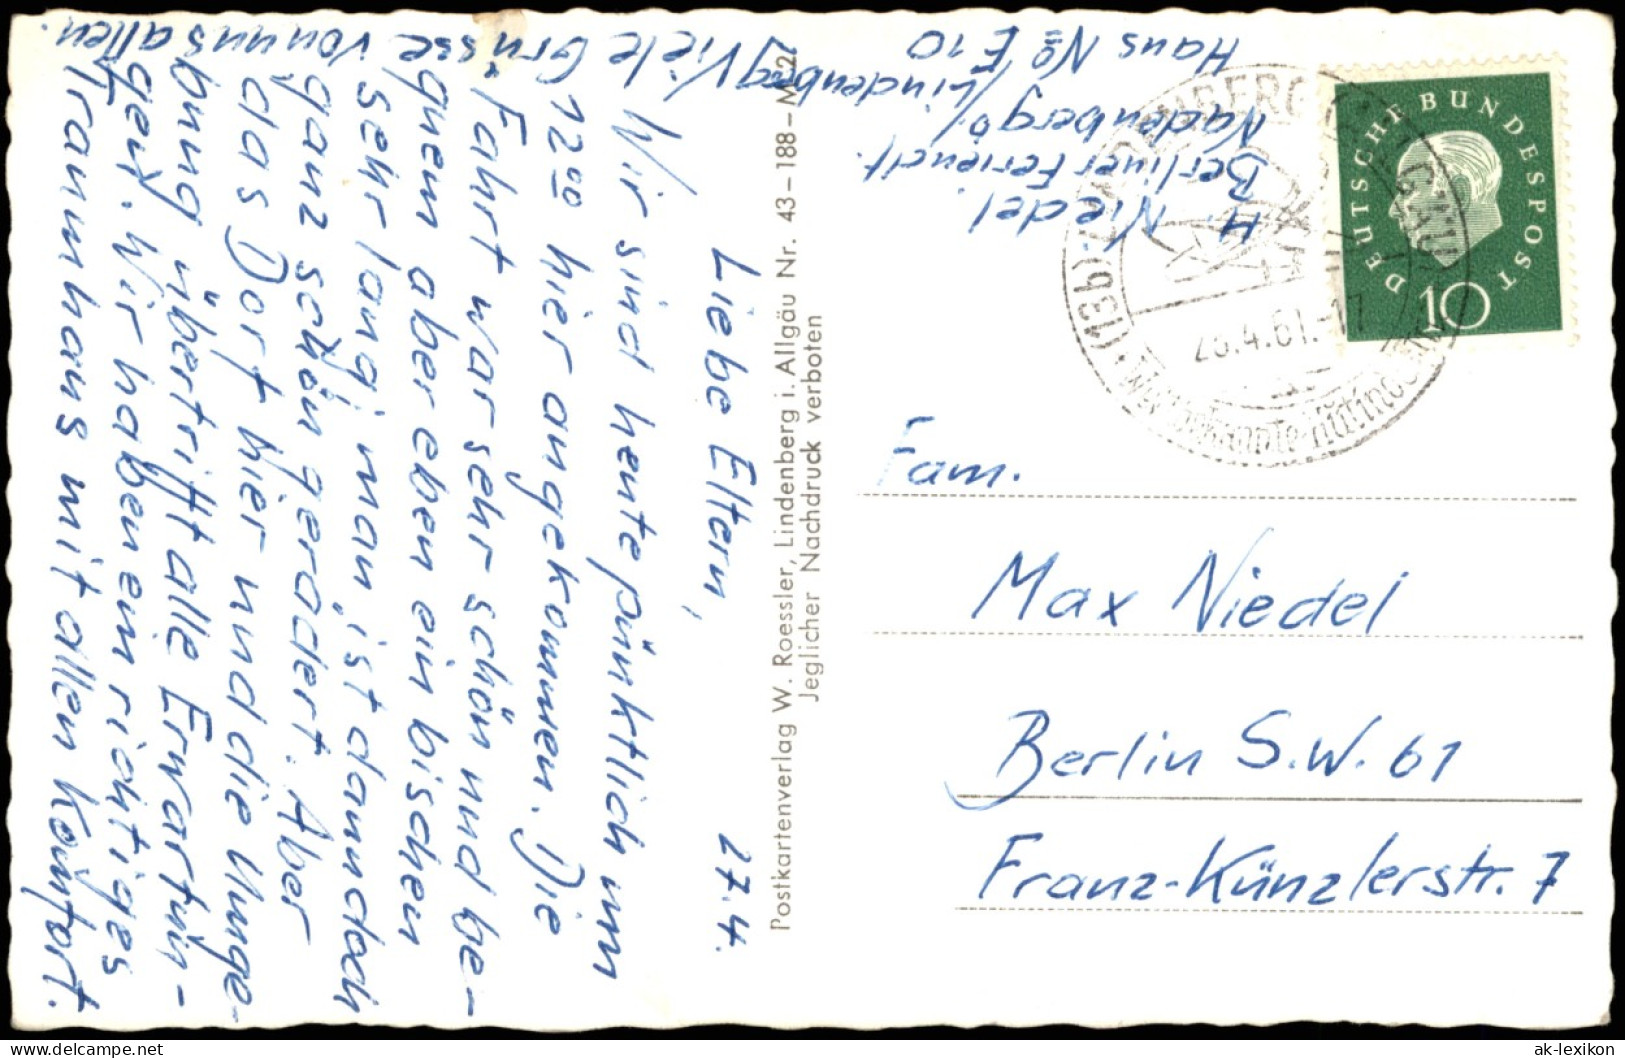 H. Niedel
Berliner Feriendf.
Nadenberg ö/
Lindenberg
Haus No E 10
27.4.
Liebe Eltern,
Wir sind heute pünktlich um
12 00 hier angekommen. Die
Fahrt war sehr schön und be-
quem aber eben ein bischen
sehr lang; man ist dann doch
ganz schön gerädert. Aber
das Dorf hier und die Umge-
bung übertrifft alle Erwartun-
gen. Wir haben ein richtiges
Traumhaus mit allen Komfort.
Viele Grüsse von uns allen.
Postkartenverlag W. Roessler, Lindenberg i. Allgäu Nr. 43-188 -
Jeglicher Nachdruck verboten
DEUTSCHE BUNDESPOST
10
(13b) LINDENBERG
.4.61.-17
Fam.
Max Niedel
Berlin S.W. 61
Franz-Künzlerstr. 7
ak-lexikon
delcampe.net